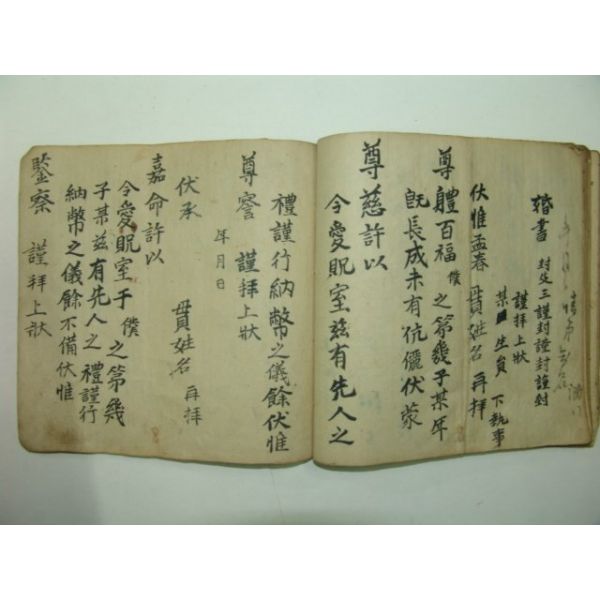 婚書 封皮三謹封謹封謹封
謹拜上狀
某 生員 下執事
伏惟孟春 貫姓名 再拜
尊體百福 僕之第幾子某年
既長成未有伉儷伏蒙
尊慈許以
令愛貺室玆有先人之
禮謹行納幣之儀餘伏惟
尊詧 謹拜上狀
年月日
伏承 貫姓名 再拜
嘉命許以
令愛貺室于僕之第幾
子某玆有先人之禮謹行
納幣之儀餘不備伏惟
鑒察 謹拜上狀